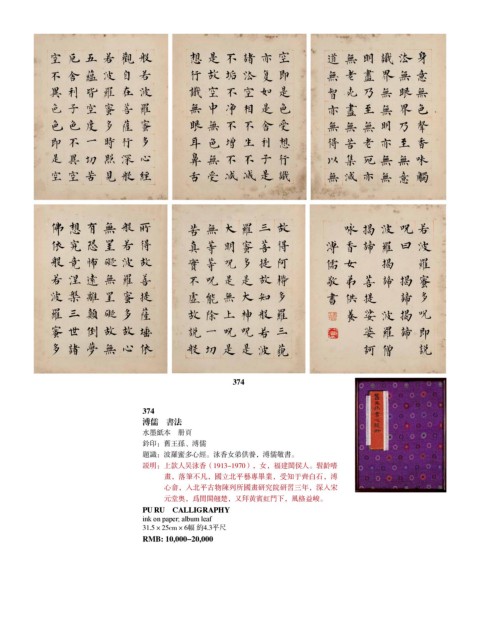 般若波羅蜜多心經
觀自在菩薩行深般
若波羅蜜多時照見
五蘊皆空度一切苦
厄舍利子色不異空
空不異色色即是空
空即是色受想行識
亦復如是舍利子是
諸法空相不生不滅
不垢不淨不增不減
是故空中無色無受
想行識無眼耳鼻舌
身意無色聲香味觸
法無眼界乃至無意
識界無無明亦無無
明盡乃至無老死亦
無老死盡無苦集滅
道無智亦無得以無
所得故菩提薩埵依
般若波羅蜜多故心
無罣礙無罣礙故無
有恐怖遠離顛倒夢
想究竟涅槃三世諸
佛依般若波羅蜜多
故得阿耨多羅三藐
三菩提故知般若波
羅蜜多是大神呪是
大明呪是無上呪是
無等等呪能除一切
苦真實不虛故說般
若波羅蜜多呪即說
呪曰 揭諦揭諦
波羅揭諦 波羅僧
揭諦 菩提娑婆訶
咏香女弟供養
溥儒敬書
374
374
溥儒 書法
水墨紙本 册頁
鈐印：舊王孫、溥儒
題識：波羅蜜多心經。泳香女弟供養，溥儒敬書。
說明：上款人吴泳香（1913–1970），女，福建閩侯人。髫齡嗜
畫，落筆不凡，國立北平藝專畢業，受知于齊白石、溥
心畬，入北平古物陳列所國畫研究院研習三年，深入宋
元堂奥，爲閨閣翹楚，又拜黄賓虹門下，風格益峻。
PU RU CALLIGRAPHY
ink on paper; album leaf
31.5 × 25cm × 6幅 約4.3平尺
RMB: 10,000–20,000